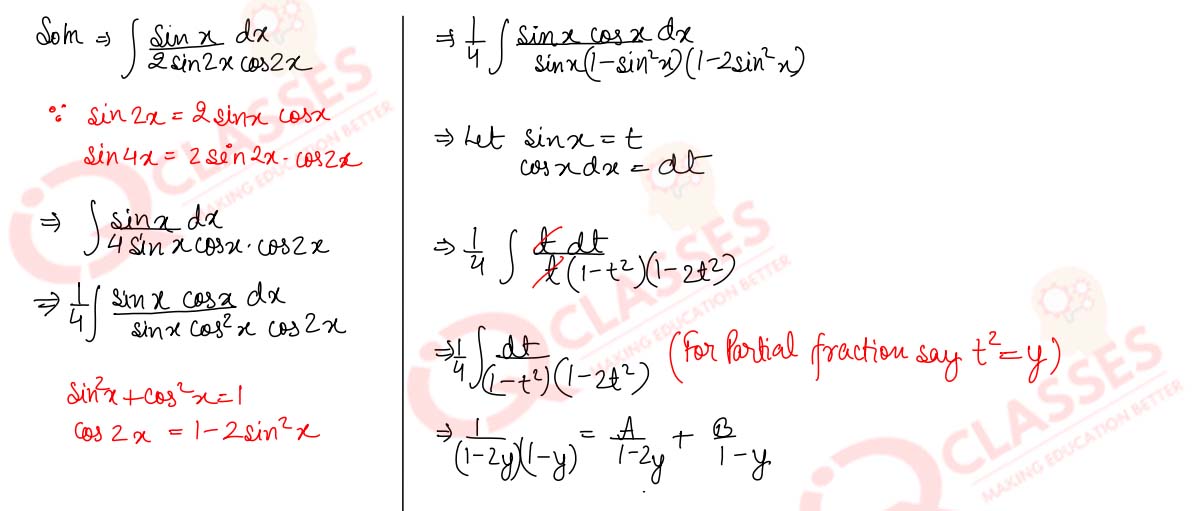 Soln ⇒ ∫ sin x dx / 2 sin2x cos2x
∵ sin 2x = 2 sinx cosx
sin 4x = 2 sin 2x · cos2x
⇒ ∫ sinx dx / 4 sin x cosx · cos2x
⇒ 1/4 ∫ sinx cosx dx / sinx cos²x cos2x
sin²x + cos²x = 1
cos 2x = 1 - 2sin²x
⇒ 1/4 ∫ sinx cosx dx / sinx(1-sin²x)(1-2sin²x)
⇒ Let sinx = t
cosxdx = dt
⇒ 1/4 ∫ t dt / t(1-t²)(1-2t²)
⇒ 1/4 ∫ dt / (1-t²)(1-2t²) (For Partial fraction say t² = y)
⇒ 1 / (1-2y)(1-y) = A / 1-2y + B / 1-y
CLASSES
MAKING EDUCATION BETTER
CLASSES
MAKING EDUCATION BETTER
CLASSES
MAKING EDUCATION BETTER